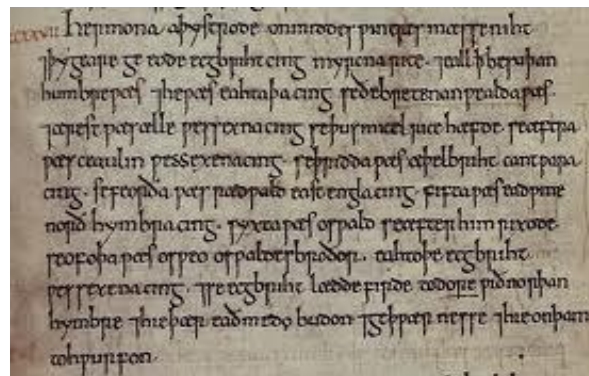 Her mona aþystrode on middes wintres mæsseniht
⁊ þy geare ge eode ecgbriht cing myrcna rice. ⁊ eall þ be suþan
humbre wæs ⁊ he wæs eahtaþa cing se ðe bretenanwealda wæs.
⁊ ærest wæs ælle wessexna cing se þus micel rice hæfde. se æftra
wæs ceaulin wessexena cing. se þridda wæs æþelbriht cantwara
cing. se feorða wæs rædwald east engla cing. fifta wæs eadwine
norð hymbra cing. syxta wæs oswald se æfter him rixode.
seofoþa wæs osweo oswaldes broðor. eahtoþe ecgbriht
wessexena cing. ⁊ se ecgbriht lædde firde to dore wið norþan
hymbre ⁊ hie þær eadmedo budon ⁊ geþwær nesse ⁊ hie on þam
tohwurfon.